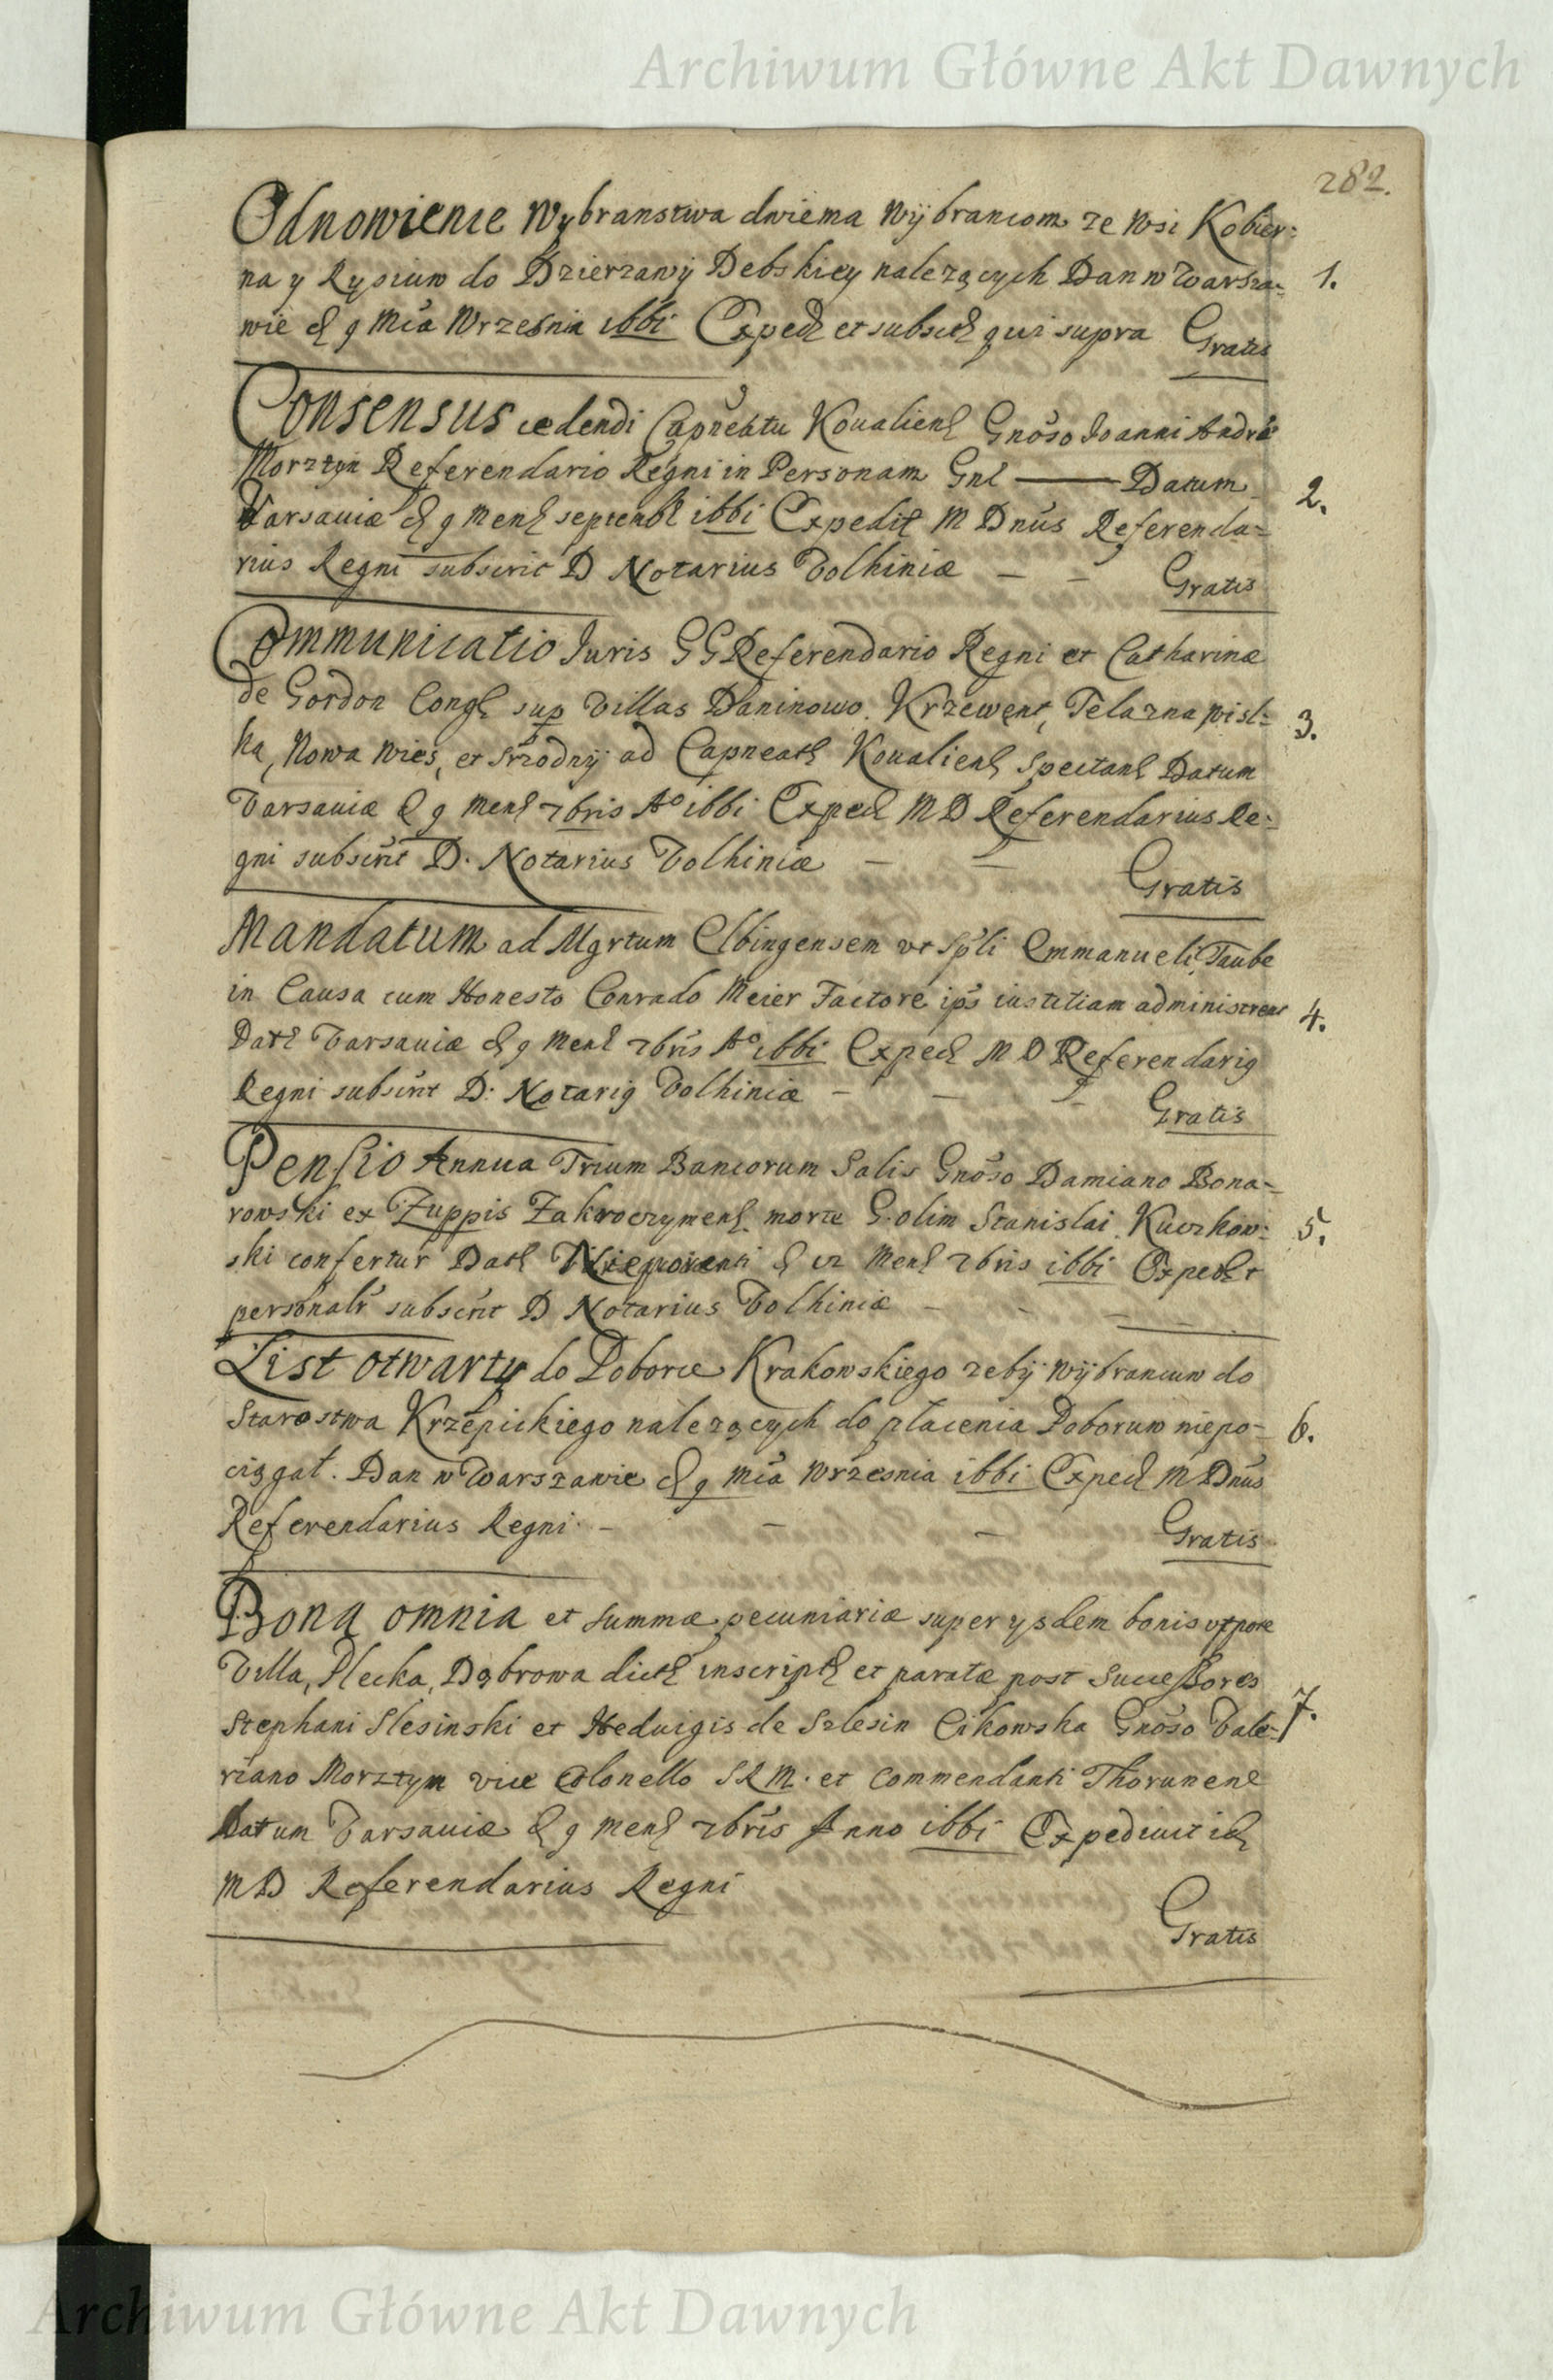 Archiwum Główne Akt Dawnych
282.
Odnowienie Wybranstwa dwiema Wÿbrancom ze Wsi Kobier:
na y Rysiuw do Dzierzawÿ Debskiey należących Dan w Warsza- 1.
wie d 9 Mca Wrzesnia 1661 Exped et subsch qui supra Gratis
Consensus cedendi Capneatu Koualien Gnoso Joanni Andreæ
Morztyn Referendario Regni in Personam Gnl —— Datum 2.
Varsauiæ d 9 Mens septenbr 1661 Expedit M Dnus Referenda=
rius Regni subscrit D Notarius Volhiniæ – – Gratis
Communicatio Juris GG Referendario Regni et Catharinæ
de Gordon Congl sup Villas Daninowo, Krzewent, Telazna wisl: 3.
ka, Nowa Wies, et Srzodnÿ ad Capneatl Koualienl Spectanl Datum
Varsauiæ d 9 Menl 7bris Ao 1661 Exped M D Referendarius Re:
gni subscrit D. Notarius Volhiniæ – – Gratis
Mandatum ad Mgrtum Elbingensem vt Spli Emmanueli Taube
in Causa cum Honesto Conrado Meier Factore ips iustitiam administrent 4.
Datl Varsauiæ d 9 Menl 7bris Ao 1661 Exped M D Referendarig
Regni subscrit D: Notarig Volhiniæ – – – Gratis
Pensio Annua Trium Bancorum Salis Gnoso Damiano Bona=
rowski ex Zuppis Zakroczymenl morte G. olim Stanislai Kuczkow: 5.
ski confertur Datl Nieporenti d 12 Menl 7bris 1661 Exped
personalr subscrit D Notarius Volhiniæ – – –
List otwarty do Poborce Krakowskiego zebÿ Wÿbrancuw do
Starostwa Krzepickiego należących do płacenia Poboruw niepo= 6.
ciągał. Dan w Warszawie d 9 mca Wrzesnia 1661 Exped M Dnus
Referendarius Regni – – – Gratis
Bona omnia et summæ pecuniariæ super ysdem bonis vtpote
Villa, Plecka, Dąbrowa dictl inscriptl et paratæ post Successores
Stephani Slesinski et Heduigis de Szlesin Cikowska Gnoso Vale= 7.
riano Morztyn vice Colonello SRM. et Commendanti Thorunenl
Datum Varsauiæ d 9 Menl 7bris Anno 1661 Expediuit id
MD Referendarius Regni
Gratis
Archiwum Główne Akt Dawnych